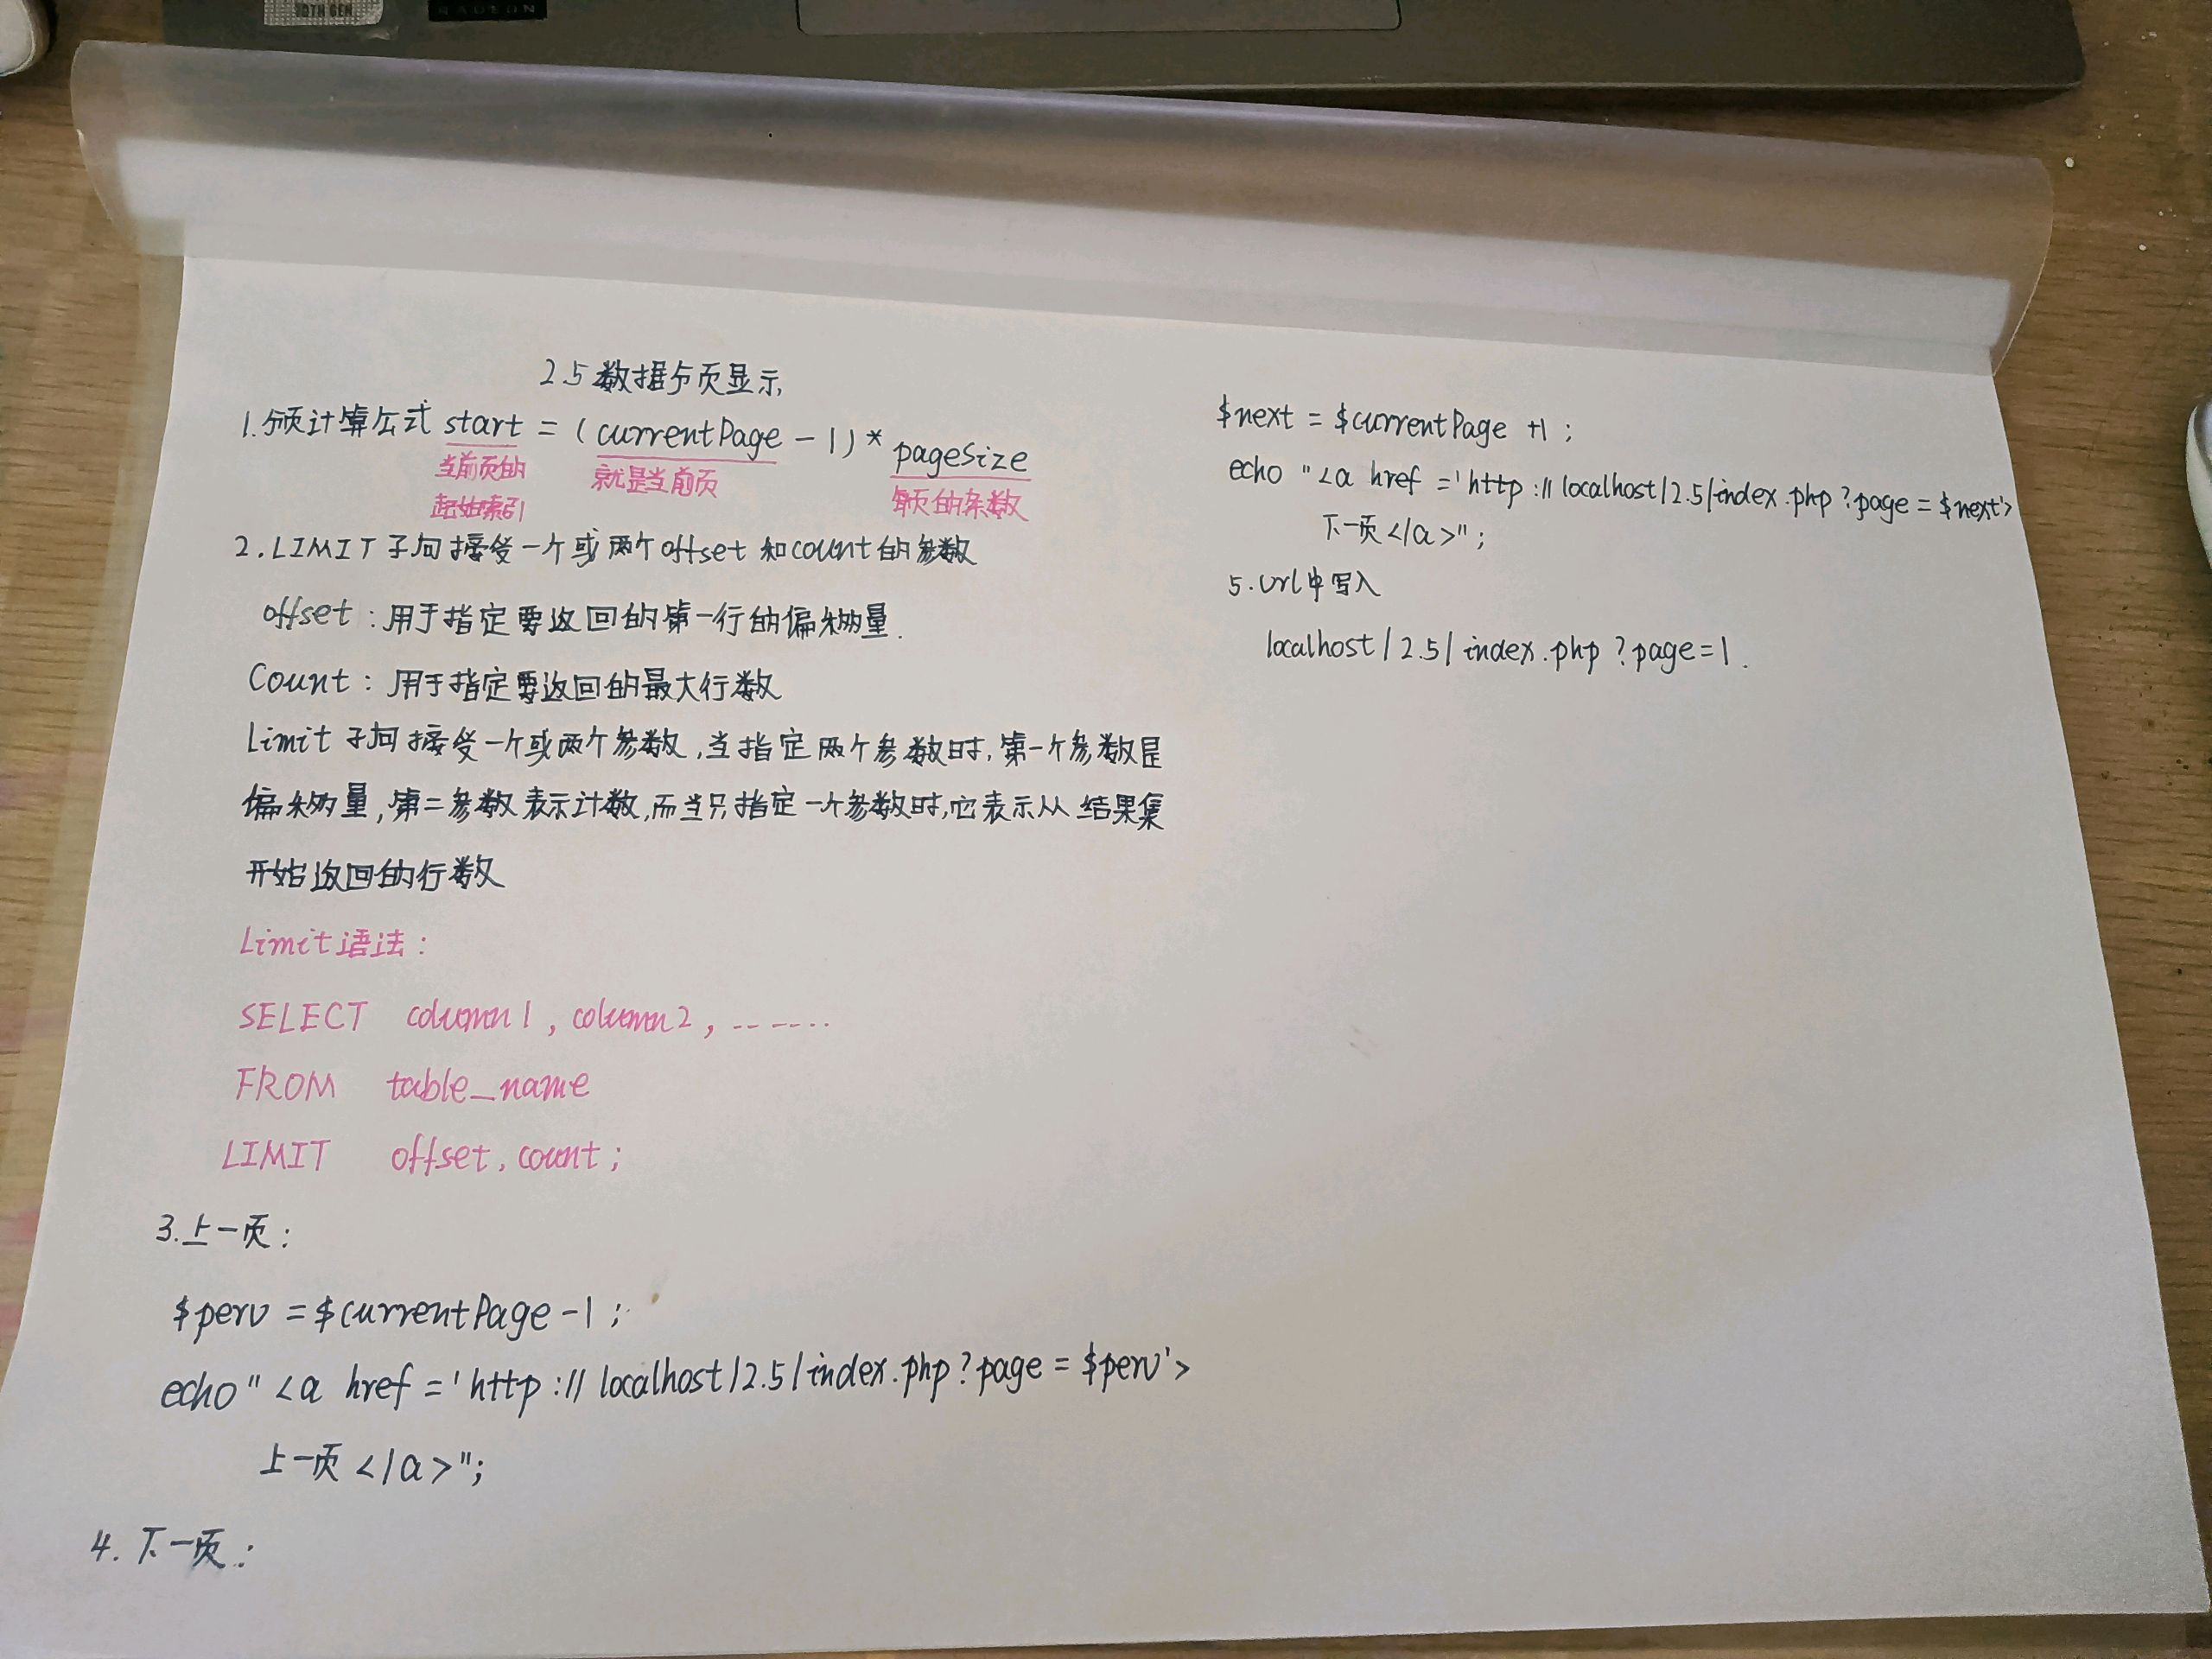 10TH GEN
RADEON
2.5 数据分页显示
1.分页计算公式 start = (currentPage - 1) * pageSize
当前页的 就是当前页 每页的条数
起始索引
2. LIMIT子句接受一个或两个offset和count的参数
offset : 用于指定要返回的第一行的偏移量.
Count : 用于指定要返回的最大行数
Limit 子句接受一个或两个参数,当指定两个参数时,第一个参数是
偏移量,第二参数表示计数,而当只指定一个参数时,它表示从结果集
开始返回的行数
Limit语法:
SELECT column1, column2, .......
FROM table_name
LIMIT offset, count;
3.上一页:
$perv = $currentPage-1;
echo"<a href='http://localhost/2.5/index.php?page=$perv'>
上一页</a>";
4. 下一页:
$next = $currentPage +1;
echo "<a href='http://localhost/2.5/index.php?page=$next'>
下一页</a>";
5. Url中写入
localhost/2.5/index.php?page=1.